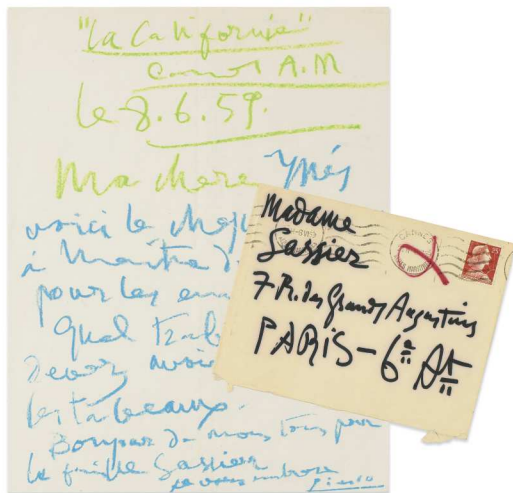 "La Californie"
A.M
le 8.6.59.
Ma chere Ynès
voici le
à
pour les
quel
devez avoir
les tableaux.
Bonjour de nous tous pour
la famille Sassier
je vous embrasse
Picasso
Madame
Sassier
7 R. des Grands Augustins
PARIS - 6e At
CANNES